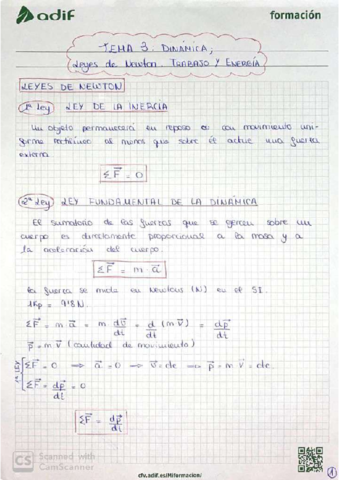 adif
formación
TEMA 3. DINÁMICA;
Leyes de Newton. TRABAJO Y ENERGÍA
LEYES DE NEWTON
1ª Ley) LEY DE LA INERCIA
Un objeto permanecerá en reposo o con movimiento uni-
forme rectilíneo al menos que sobre él actúe una fuerza
externa
ΣF⃗ = 0
2ª Ley) LEY FUNDAMENTAL DE LA DINÁMICA
El sumatorio de las fuerzas que se ejercen sobre un
cuerpo es directamente proporcional a la masa y a
la aceleración del cuerpo.
ΣF⃗ = m a⃗
La fuerza se mide en Newtons (N) en el SI.
1Kp = 9'8 N.
ΣF⃗ = m a⃗ = m dv⃗/dt = d/dt (m v⃗) = dp⃗/dt
p⃗ = m v⃗ (cantidad de movimiento)
1ª LEY { ΣF⃗ = 0 ⟹ a⃗ = 0 ⟹ v⃗ = cte ⟹ p⃗ = m v⃗ = cte.
ΣF⃗ = dp⃗/dt = 0
ΣF⃗ = dp⃗/dt
CS Scanned with
CamScanner
cfv.adif.es/Hformacion/
1